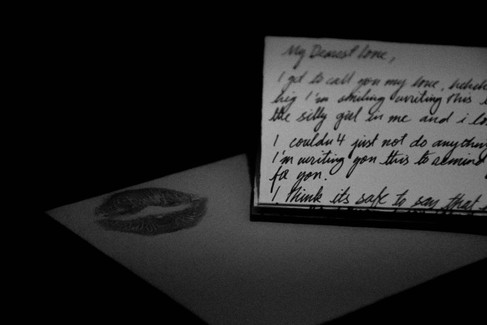 My Dearest love,
I get to call you my love, heheh
big I'm smiling writing this
the silly girl in me and i lo
I couldn't just not do anythin
I'm writing you this to remind
for you.
I think its safe to say that